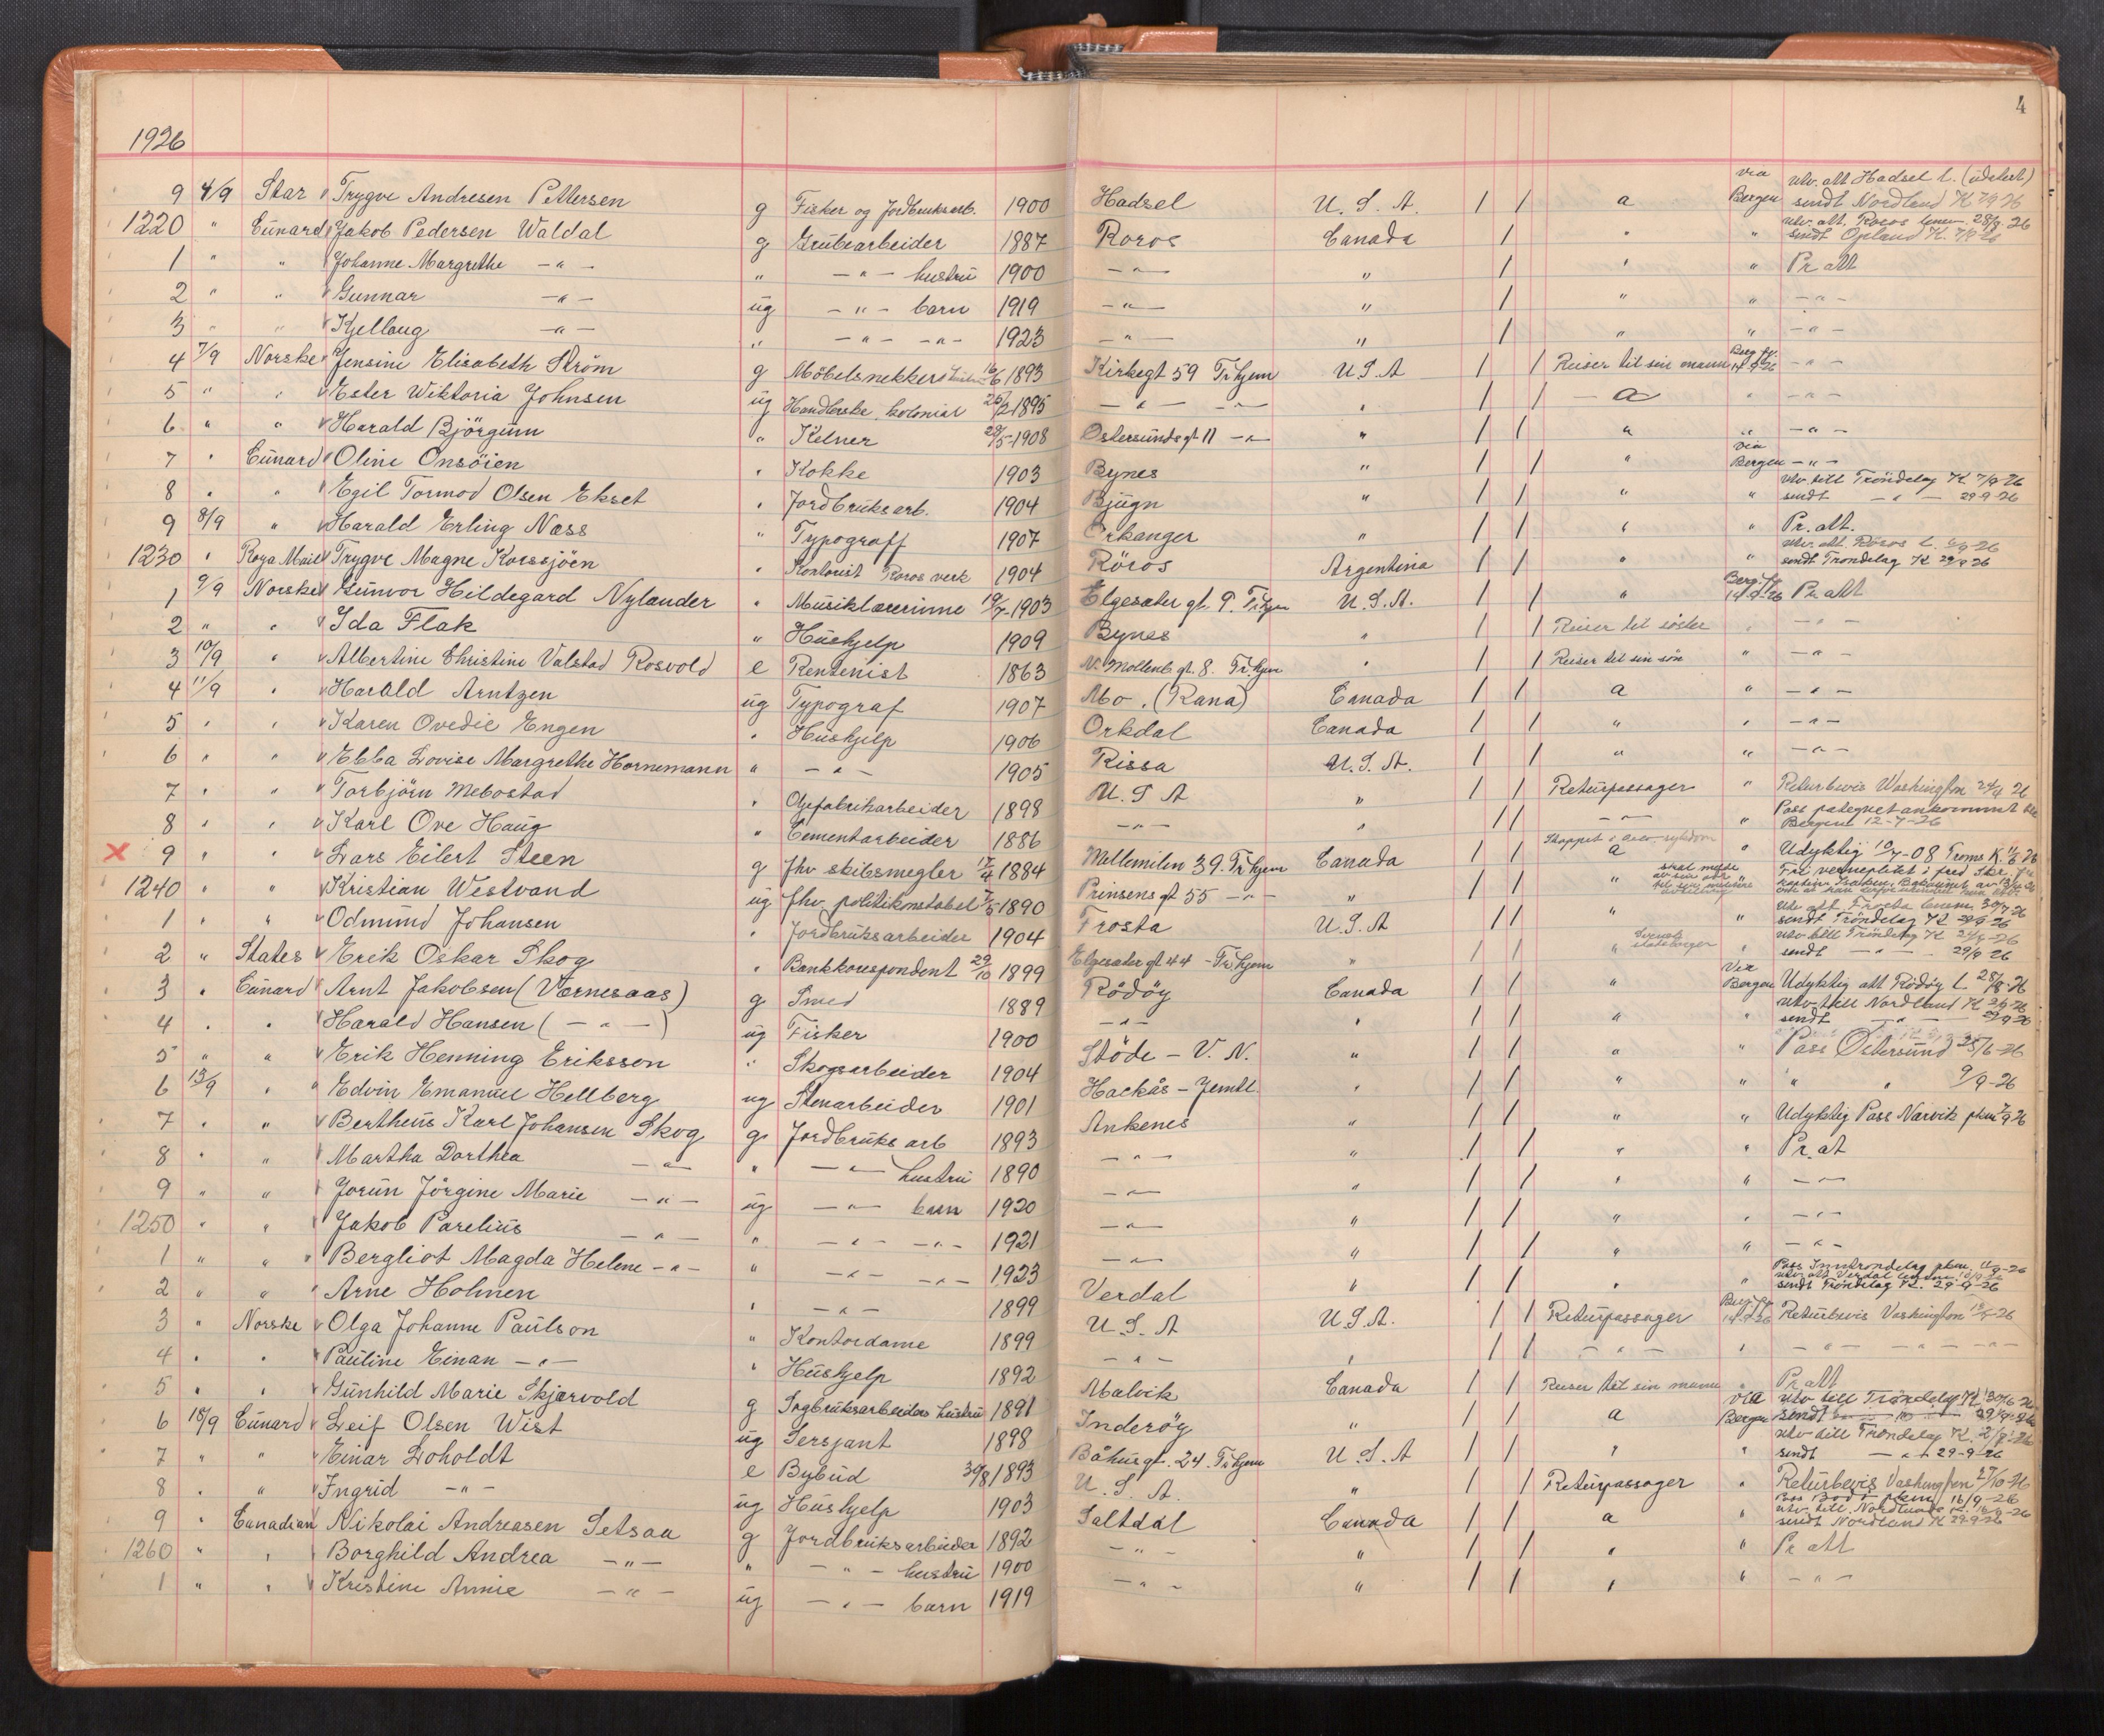 4
1926
9 4/9 Star Trygve Andresen Pettersen g Fisker og Jordbruksarb. 1900 Hadsel U.S.A. / / a via Bergen utv. att Hadsel l. (udatert) sendt Nordland K 7/9 26
1220 " Cunard Jakob Pedersen Waldal g Grubearbeider 1887 Roros Canada / " " utv. att. Roros lensm. 28/8-26 sendt Opland K. 7/9 26
1 " " Johanne Margrethe -"- " -"- hustru 1900 -"- " / " " Pr att
2 " " Gunnar -"- ug -"- barn 1919 -"- " / " " -"-
3 " " Kjellaug -"- " -"- -"- 1923 -"- " / " " -"-
4 7/9 Norske Jensine Elisabeth Ström g Möbelsnekkers hustru 16/6 1893 Kirkegt 59 Tr hjem U.S.A / / Reiser til sin mann Berg.fj. 14-9-26 -"-
5 " " Ester Wiktoria Johnsen ug Handlerske kolonial 25/2 1895 -"- -"- " / / a " -"-
6 " " Harald Björgum " Kelner 28/5-1908 Ostersundsgt 11 -"- " / / " " -"-
7 " Cunard Oline Onsöien " Kokke 1903 Bynes " / / " via Bergen -"-
8 " " Egil Tormod Olsen Ekset " Jordbruksarb. 1904 Bjugn " / / " " utv. till Tröndelag K 7/9-26 sendt -"- 29-9-26
9 8/9 " Harald Erling Næss " Typograff 1907 Orkanger " / / " " Pr. att.
1230 " Roya Mail Trygve Magne Korssjöen " Kontorist Roros verk 1904 Röros Argentina / / " " utv. att. Röros l. 6/9-26 sendt Trondelag K 29/9 26
1 9/9 Norske Gunvor Hildegard Nylander " Musiklærerinne 19/7-1903 Elgesæter gt. 9. Tr hjem U.S.A. / / " Berg.fj. 14-9-26 Pr att
2 " " Ida Flak " Hüshjelp 1909 Bynes " / / Reiser til söster " -"-
3 10/9 " Albertine Christine Valstad Rosvold e Rentenist 1863 N. Mollenb. gt. 8. Tr. hjem " / / Reiser til sin sön " -"-
4 11/9 " Harald Arntzen ug Typograf 1907 Mo. (Rana) Canada / / a " -"-
5 " " Karen Ovedie Engen " Hüshjelp 1906 Orkdal Canada / / " " -"-
6 " " Ebba Lovise Margrethe Hornemann " -"- 1905 Rissa U.S.A. / / " " -"-
7 " " Torbjörn Mebostad " Oljefabrikarbeider 1898 U.S A " / / Returpassager " Returbevis Washington 24/4 26
8 " " Karl Ove Haug " Cementarbeider 1886 -"- " / / -"- " Pass pategnet ankommet Bergen 12-7-26
X 9 " " Lars Eilert Steen g fhv skibsmegler 17/4 1884 Mellemilen 39. Tr hjem Canada / / Stoppet a " Udyktig 10/7-08 Troms K. 11/6 26
1240 " " Kristian Westvand ug fhv politikonstabel 7/5 1890 Prinsens gt 55 -"- " / / " Fri verneplikt i fred
1 " " Odmund Johansen " Jordbruksarbeider 1904 Frosta U.S.A / / " " utv att Frosta lensm. 30/7 26 sendt Tröndelag K. 29/9 26
2 " States Erik Oskar Skog " Bankkorespondent 29/10 1899 Elgesæter gt 44 - Tr hjem " / / " Svensk statsborger " utv till Tröndelag K 24/8-26 sendt -"- 29/9 26
3 " Cunard Arnt Jakobsen (Værnesaas) g Smed 1889 Rödöy Canada / / " Via Bergen Udyktig att Rödöy l. 28/8-26
4 " " Harald Hansen (-"-) ug Fisker 1900 -"- " / / " " utv till Nordland K 2/9 26 sendt -"- 29/9 26
5 " " Erik Henning Eriksson " Skogsarbeider 1904 Stöde - V. N. " / / " " Pass Östersund 25/6-26
6 13/9 " Edvin Emanuel Hellberg ug Stenarbeider 1901 Hackås - Jemtl. " / / " " " " 9/9-26
7 " " Bertheus Karl Johansen Skog g Jordbruks arb 1893 Ankenes " / / " " Udyktig Pass Narvik pkm 7/9 26
8 " " Martha Dorthea -"- " -"- hustru 1890 -"- " / / " " Pr. at
9 " " Jorun Jörgine Marie -"- ug -"- barn 1920 -"- " / / " " -"-
1250 " " Jakob Parelius -"- " -"- -"- 1921 -"- " / / " " -"-
1 " " Bergliot Magda Helene -"- " -"- -"- 1923 -"- " / / " " -"-
2 " " Arne Holmen " -"- 1899 Verdal " / / " " Pass Inntrondelag pkm. 4/9-26 utv att Verdal lensm. 10/9 26 sendt Tröndelag K. 29-9-26
3 " Norske Olga Johanne Paulson " Kontordame 1899 U.S.A U.S.A. / / Returpassager Berg.fj. 14-9-26 Returbevis Vashington 13/5-26
4 " " Pauline Einan -"- " Hüshjelp 1892 -"- " / / -"- " -"- -"- -"-
5 " " Gunhild Marie Skjærvold g Sagbruksarbeiders hustru 1891 Malvik Canada / / Reiser til sin mann " Pr att
6 18/9 Cunard Leif Olsen Wist ug Sersjant 1898 Inderöy " / / a via Bergen utv till Tröndelag K. 30/6 26 sendt -"- 29/9-26
7 " " Einar Loholdt e Bybud 30/8 1893 Båhus gt. 24. Tr hjem U.S.A / / " " utv till Trondelag K. 2/9-26 sendt -"- 29-9-26
8 " " Ingrid -"- ug Hüshjelp 1903 U.S.A. " / / Returpassager " Returbevis Vashington 27/10-26
9 " Canadian Nikolai Andreasen Setsaa g Jordbruksarbeider 1892 Saltdal Canada / / a " Pass Bodö pkm 16/9-26 utv. till Nordlands K. 16/9-26 sendt Nordland K 29-9-26
1260 " " Borghild Andrea -"- " -"- hustru 1900 -"- " / / " " Pr att
1 " " Kristine Annie -"- ug -"- barn 1919 -"- " / / " " -"-